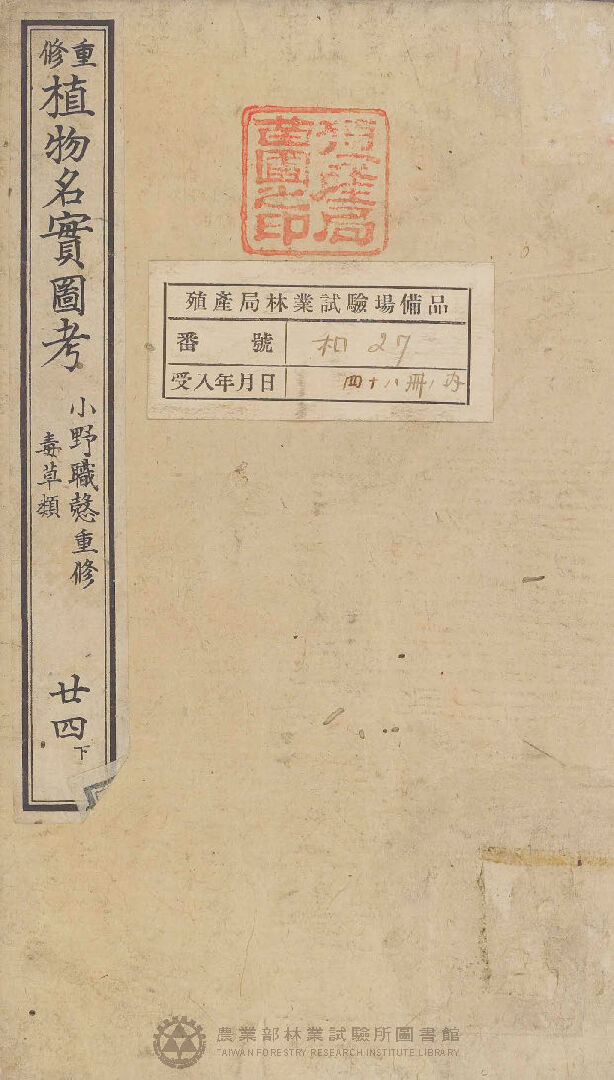 重修
植物名實圖考
小野職愨重修
毒草類
廿四下
殖產局
苗圃之印
殖產局林業試驗場備品
番號 和 27
受入年月日 四十八冊ノ内
農業部林業試驗所圖書館
TAIWAN FORESTRY RESEARCH INSTITUTE LIBRARY